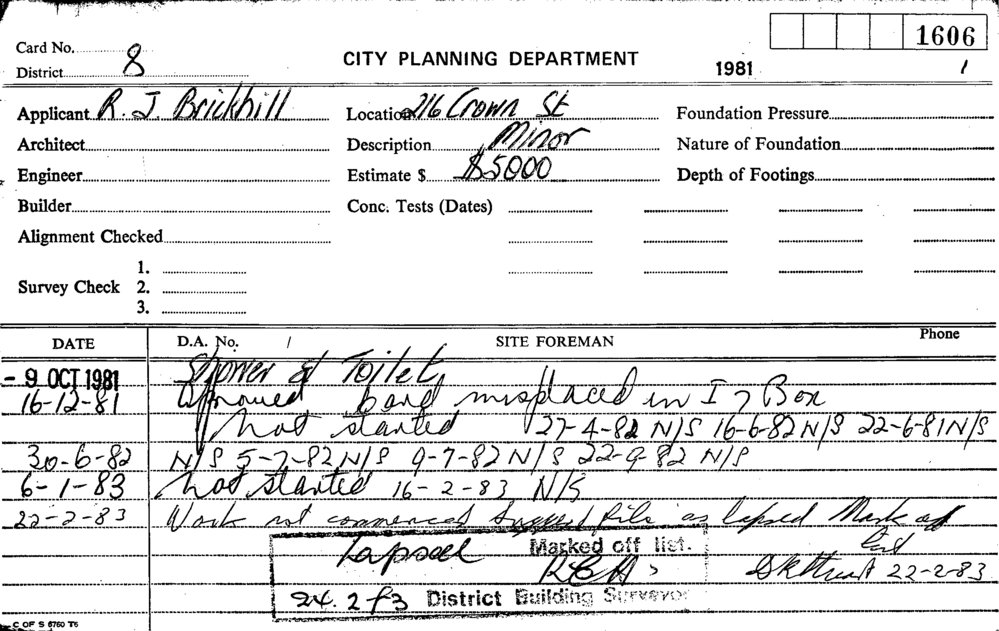 1606
Card No. 8
CITY PLANNING DEPARTMENT
1981 1
District
Applicant R. J. Brickhill Location 216 Crown St Foundation Pressure
Architect Description Minor Nature of Foundation
Engineer Estimate $ $5000 Depth of Footings
Builder Conc. Tests (Dates)
Alignment Checked
1.
Survey Check 2.
3.
DATE D.A. No. / SITE FOREMAN Phone
- 9 OCT 1981 Shower & Toilet
16-12-81 Approved card misplaced in I 7 Box
Not started 27-4-82 N/S 16-6-82 N/S 22-6-81 N/S
30-6-82 N/S 5-7-82 N/S 9-7-82 N/S 22-9-82 N/S
6-1-83 Not started 16-2-83 N/S
22-2-83 Work not commenced Suggest file as lapsed Mark off
list
Lapsed Marked off list.
22-2-83
24.2.83 District Building Surveyor
C OF S 6760 T6